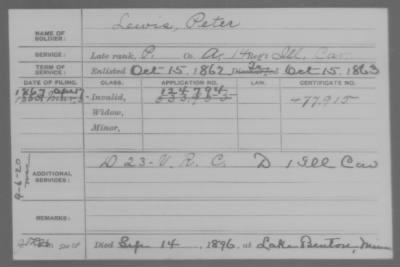 NAME OF SOLDIER: Lewis, Peter
SERVICE: Late rank, P. Co. A, 14 Reg't Ill. Cav.
TERM OF SERVICE: Enlisted Oct 15, 1862 Oct 15, 1863
DATE OF FILING. CLASS. APPLICATION NO. LAW. CERTIFICATE NO.
1867 Apr 17 Invalid, 124,794 477,915
Widow,
Minor,
ADDITIONAL SERVICES: D 23 - V. R. C. D 1 Ill Cav
REMARKS:
Died Sep 14, 1896, at Lake Benton, Minn